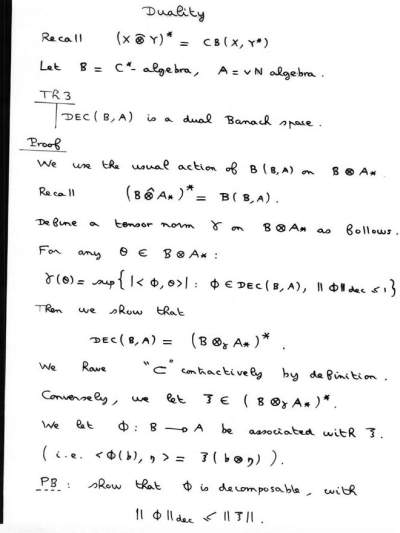 Duality
Recall (X ⊗̂ Y)* = CB(X, Y*)
Let B = C*-algebra, A = vN algebra.
TR 3
DEC(B, A) is a dual Banach space.
Proof
We use the usual action of B(B, A) on B ⊗ A*
Recall (B ⊗̂ A*)* = B(B, A).
Define a tensor norm γ on B ⊗ A* as follows.
For any θ ∈ B ⊗ A* :
γ(θ) = sup{ |<Φ, θ>| : Φ ∈ DEC(B, A), ||Φ||dec ≤ 1}
Then we show that
DEC(B, A) = (B ⊗γ A*)* .
We have "⊂" contractively by definition.
Conversely, we let ξ ∈ (B ⊗γ A*)*.
We let Φ : B → A be associated with ξ.
(i.e. <Φ(b), η> = ξ(b ⊗ η)).
PB : show that Φ is decomposable, with
||Φ||dec ≤ ||ξ||.